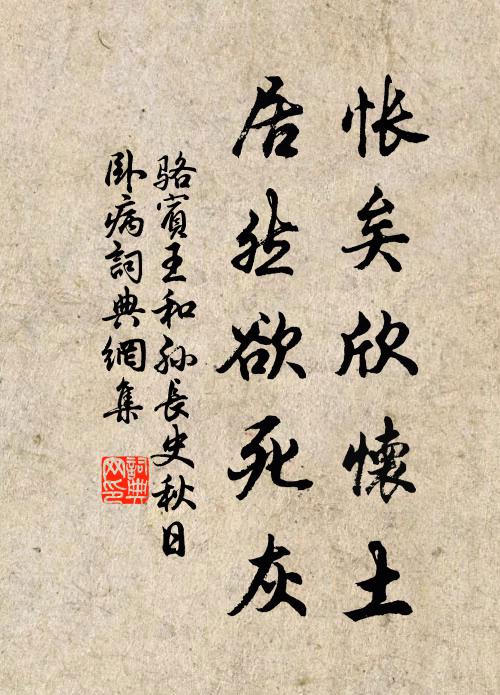 悵矣欣懷土
居然欲死灰
駱賓王和孫長史秋日
臥病詞典網集
詞典
网印